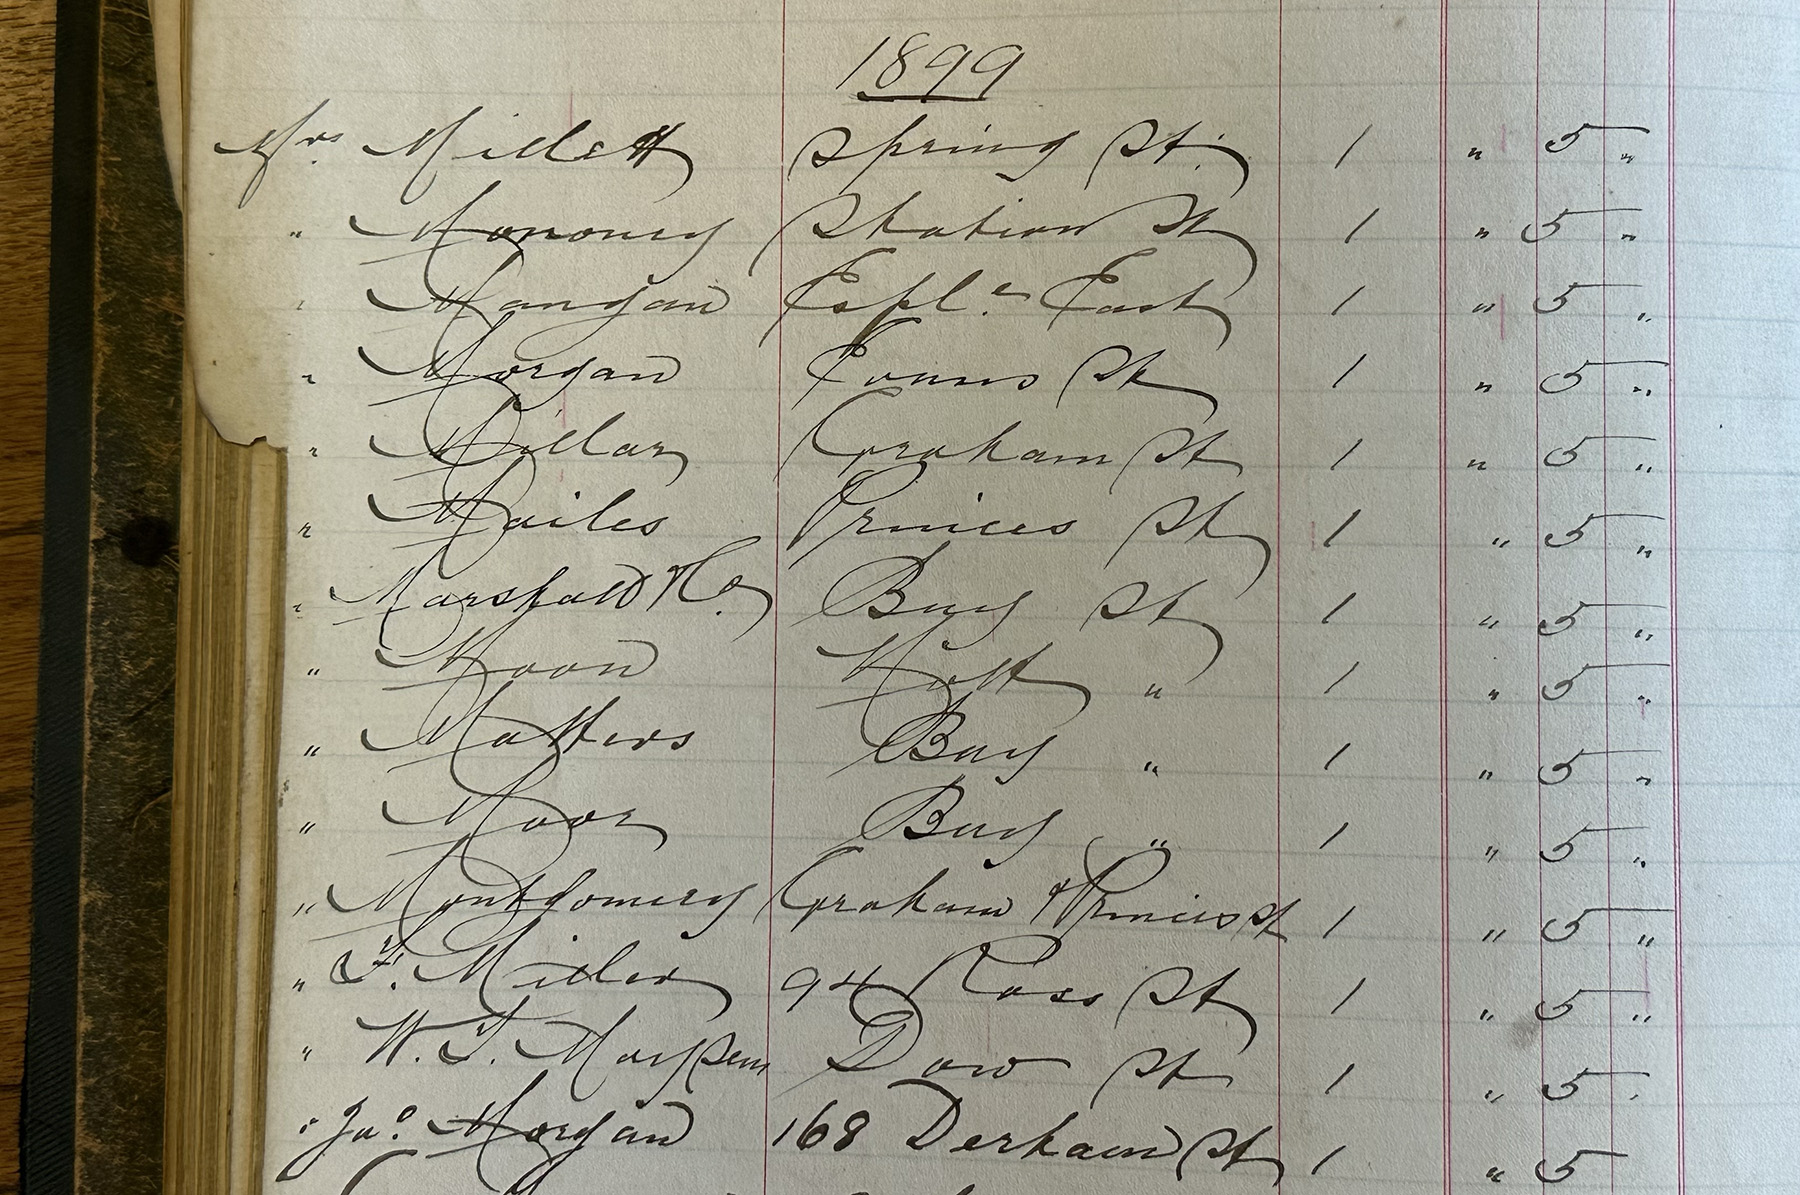 1899
Mrs. Millett Spring St. 1 " 5 "
" Moroney Station St 1 " 5 "
" Mangan Espl.e East 1 " 5 "
" Morgan Evans St 1 " 5 "
" Millar Graham St 1 " 5 "
" Mailes Princes St 1 " 5 "
" Marshall H. Bay St 1 " 5 "
" Moon Nott " 1 " 5 "
" Matters Bay " 1 " 5 "
" Moor Bay " 1 " 5 "
" Montgomery Graham & Princes St 1 " 5 "
" F. Miller 94 Ross St 1 " 5 "
" W. T. Dow St 1 " 5 "
" Jno. Morgan 168 Derham St 1 " 5